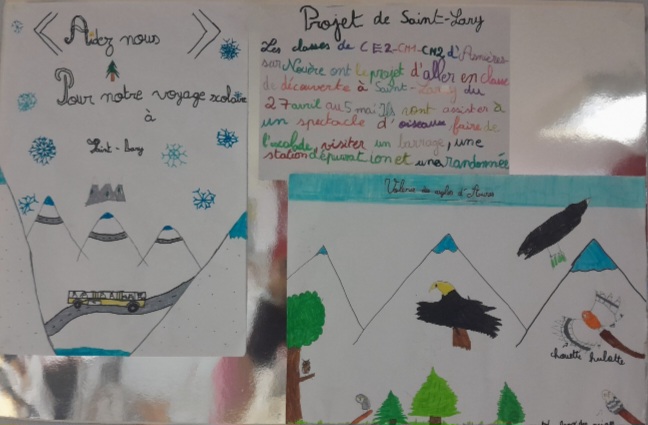 Aidez nous
Pour notre voyage scolaire
à
Saint-Lary
Projet de Saint-Lary
Les classes de CE2-CM-CM2 d'Asnières
sur Nouère ont le projet d'aller en classe
de découverte à Saint-Lary du
27 avril au 5 mai Ils vont assister à
un spectacle d'oiseaux, faire de
l'escalade, visiter un barrage, une
station d'épuration et une randonnée
aigles d'
chouette hulotte